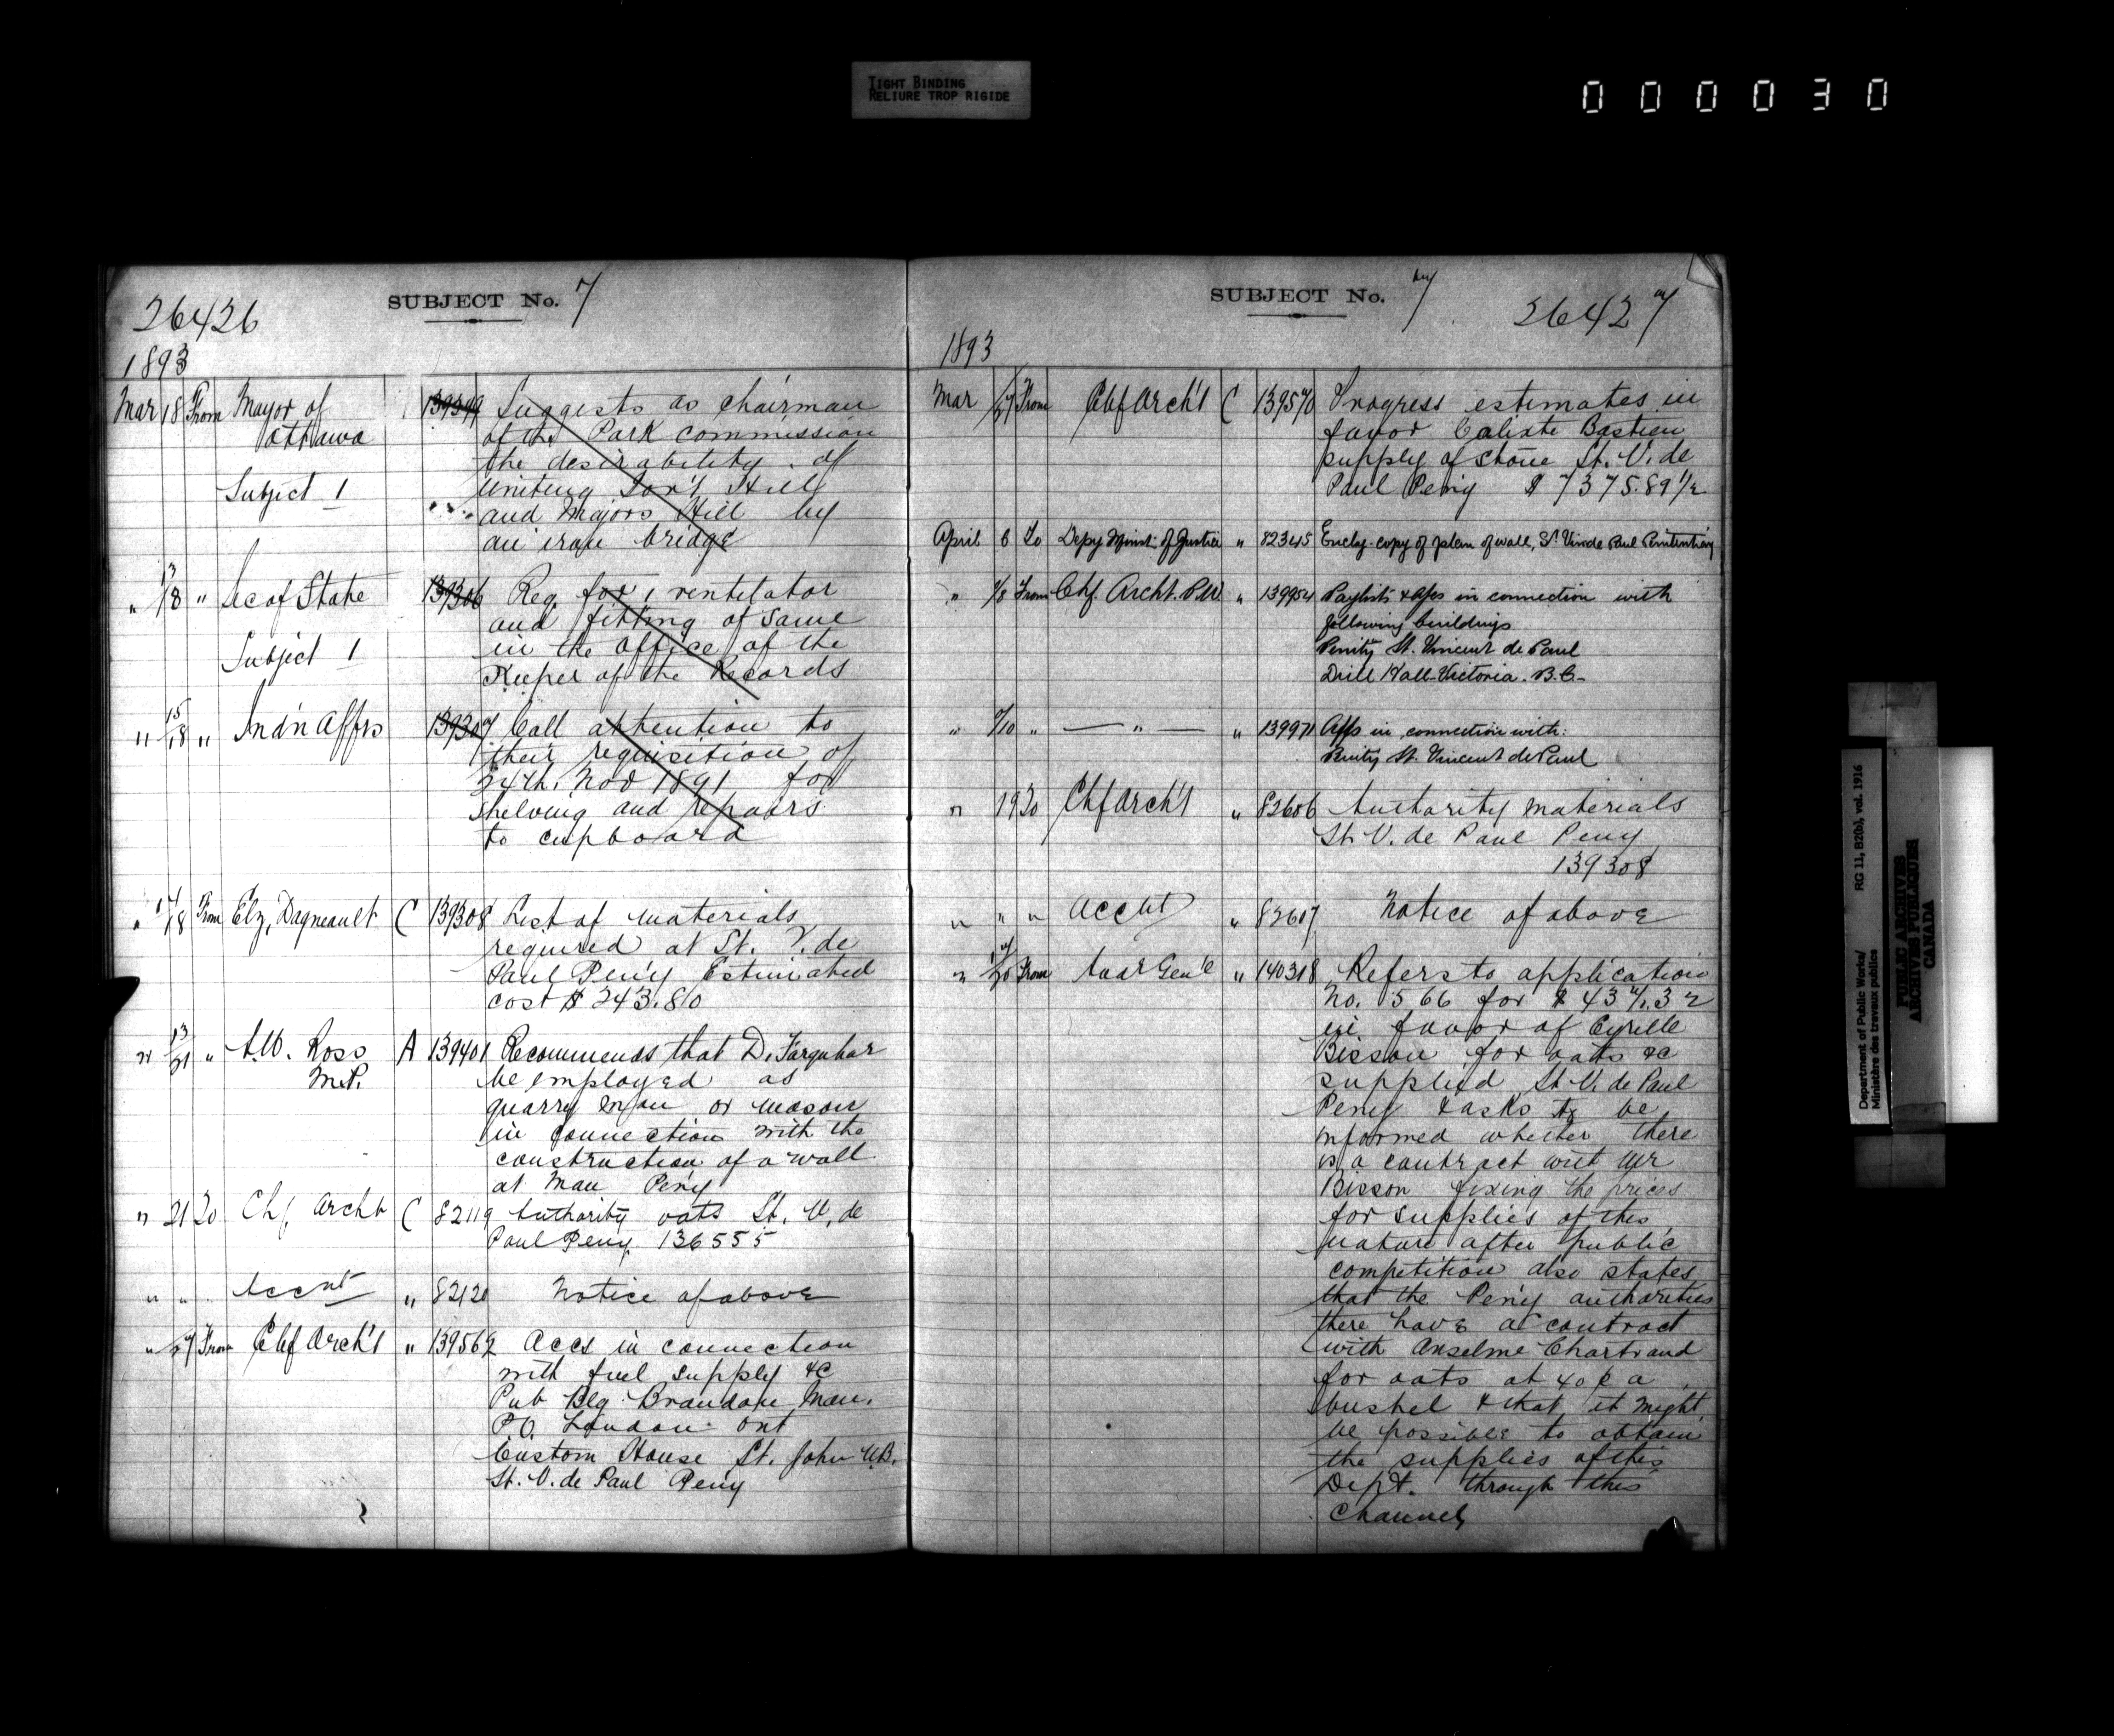 TIGHT BINDING
RELIURE TROP RIGIDE
000030
SUBJECT No. 7
26426
1893
Mar 18 From Mayor of Ottawa 139349 Suggests as Chairman
of the Park Commission
the desirability of
Subject 1 uniting Gov't Hill
and Majors Hill by
an iron bridge
" 13/18 " Sec of State 139306 Req. for 1 ventilator
and fitting of same
Subject 1 in the office of the
Keeper of the Records
" 15/18 " Ind'n Affrs 139307 Call attention to
their requisition of
24th. Nov 1891 for
shelving and repairs
to cupboard
" 17/18 From Elz. Dagneault C 139308 List of materials
required at St. V. de
Paul Peny Estimated
cost $243.80
" 13/21 " A.W. Ross A 139401 Recommends that D. Farquhar
M.P. be employed as
quarry man or mason
in connection with the
construction of a wall
at Man Peny
" 21 To Chf Archt C 82119 Authority oats St. V. de
Paul Peny. 136555
" " Accnt " 82120 Notice of above
" 27 From Chf Arch't " 139562 Accs in connection
with fuel supply &c
Pub Blg. Brandon Man.
P.O. London Ont
Custom House St. John N.B.
St. V. de Paul Peny
SUBJECT No. 7
26427
1893
Mar 27 From Chf Arch't C 139570 Progress estimates in
favor Calixte Bastien
supply of stone St. V. de
Paul Peny $7375.89 1/2
April 6 To Depy Minr of Justice " 82345 Enclg. copy of plan of wall, St. Vin de Paul Penitentiary
" 7/8 From Chf. Archt. P.W. " 139954 Paylists & a/cs in connection with
following buildings
Penity St. Vincent de Paul
Drill Hall Victoria. B.C.
" 7/10 " — " — " 139971 A/cs in connection with:
Penity St. Vincent de Paul
" 19 To Chf Arch't " 82606 Authority materials
St. V. de Paul Peny
139308
" " " Accnt " 82607 Notice of above
" 17/20 From Aud Gen'l " 140318 Refers to application
No. 566 for $437.32
in favor of Cyrille
Bisson for oats &c
supplied St. V. de Paul
Peny & asks to be
informed whether there
is a contract with Mr
Bisson fixing the prices
for supplies of this
nature after public
competition also states
that the Peny authorities
there have a contract
with Anselme Chartrand
for oats at 40¢ a
bushel & that it might
be possible to obtain
the supplies of this
Dept. through this
Channel
Department of Public Works/
Ministère des travaux publics
RG 11, B2(b), vol. 1916
PUBLIC ARCHIVES
ARCHIVES PUBLIQUES
CANADA